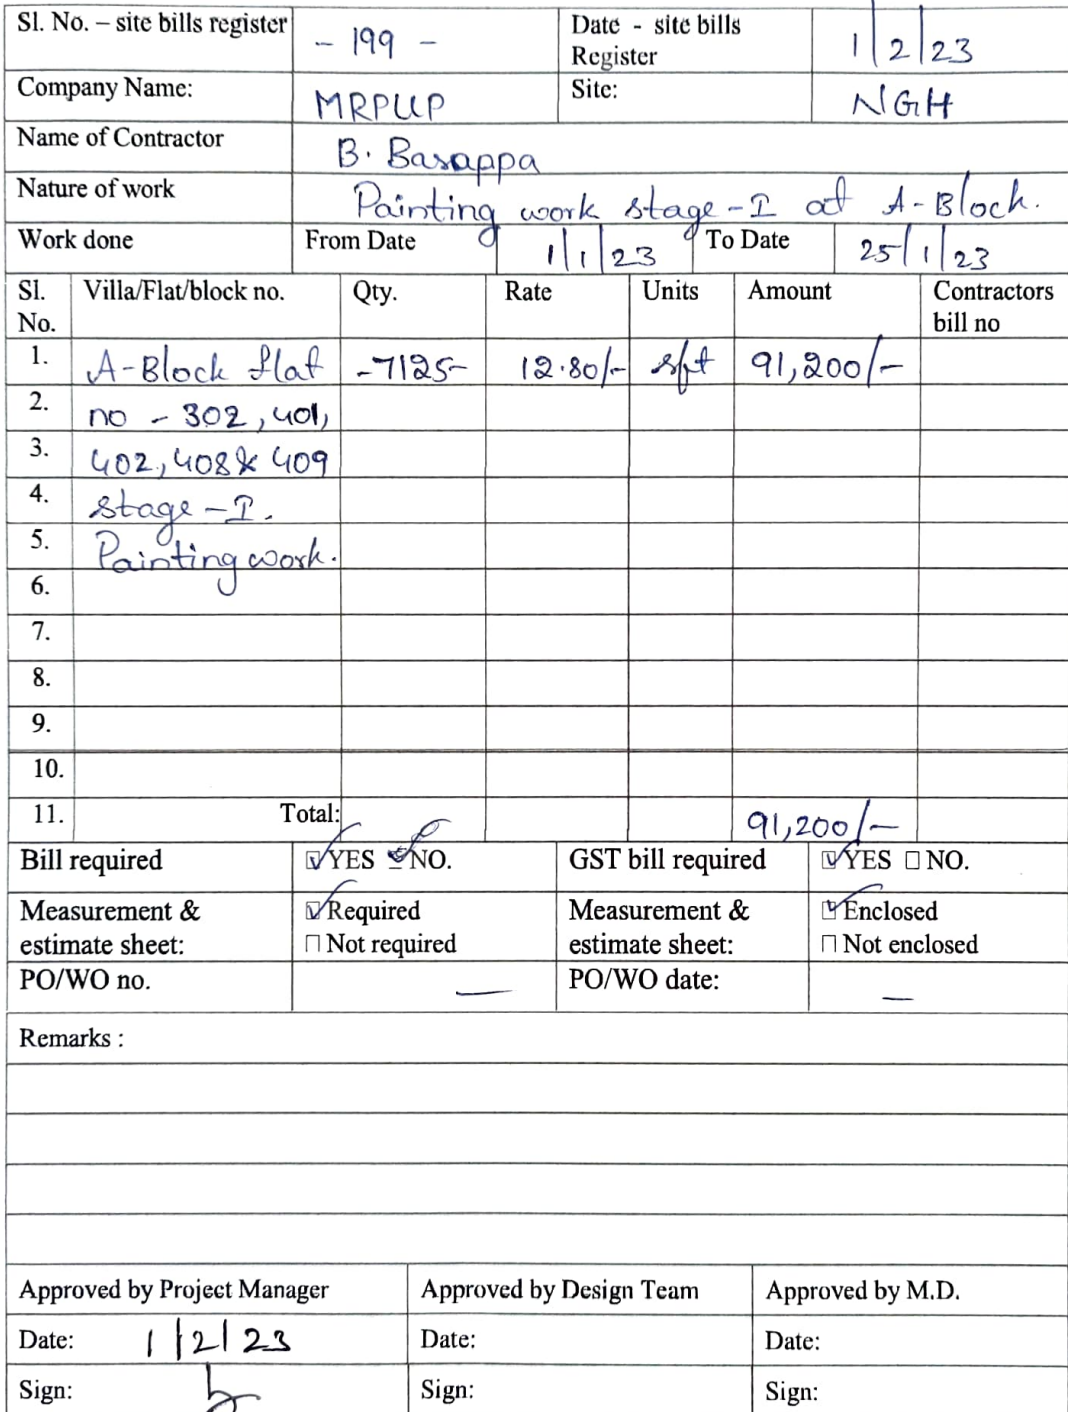 Sl. No. – site bills register - 199 - Date - site bills Register 1/2/23
Company Name: MRPLLP Site: NGH
Name of Contractor B. Basappa
Nature of work Painting work stage-I at A-Block.
Work done From Date 1/1/23 To Date 25/1/23
Sl. No. Villa/Flat/block no. Qty. Rate Units Amount Contractors bill no
1. A-Block flat -7125- 12.80/- sft 91,200/-
2. no - 302, 401,
3. 402, 408 & 409
4. stage-I.
5. Painting work.
6.
7.
8.
9.
10.
11. Total: 91,200/-
Bill required ☑YES ☑NO. GST bill required ☑YES ☐NO.
Measurement & estimate sheet: ☑Required Measurement & estimate sheet: ☑Enclosed
☐Not required ☐Not enclosed
PO/WO no. — PO/WO date: —
Remarks :
Approved by Project Manager Approved by Design Team Approved by M.D.
Date: 1/2/23 Date: Date:
Sign: Sign: Sign: